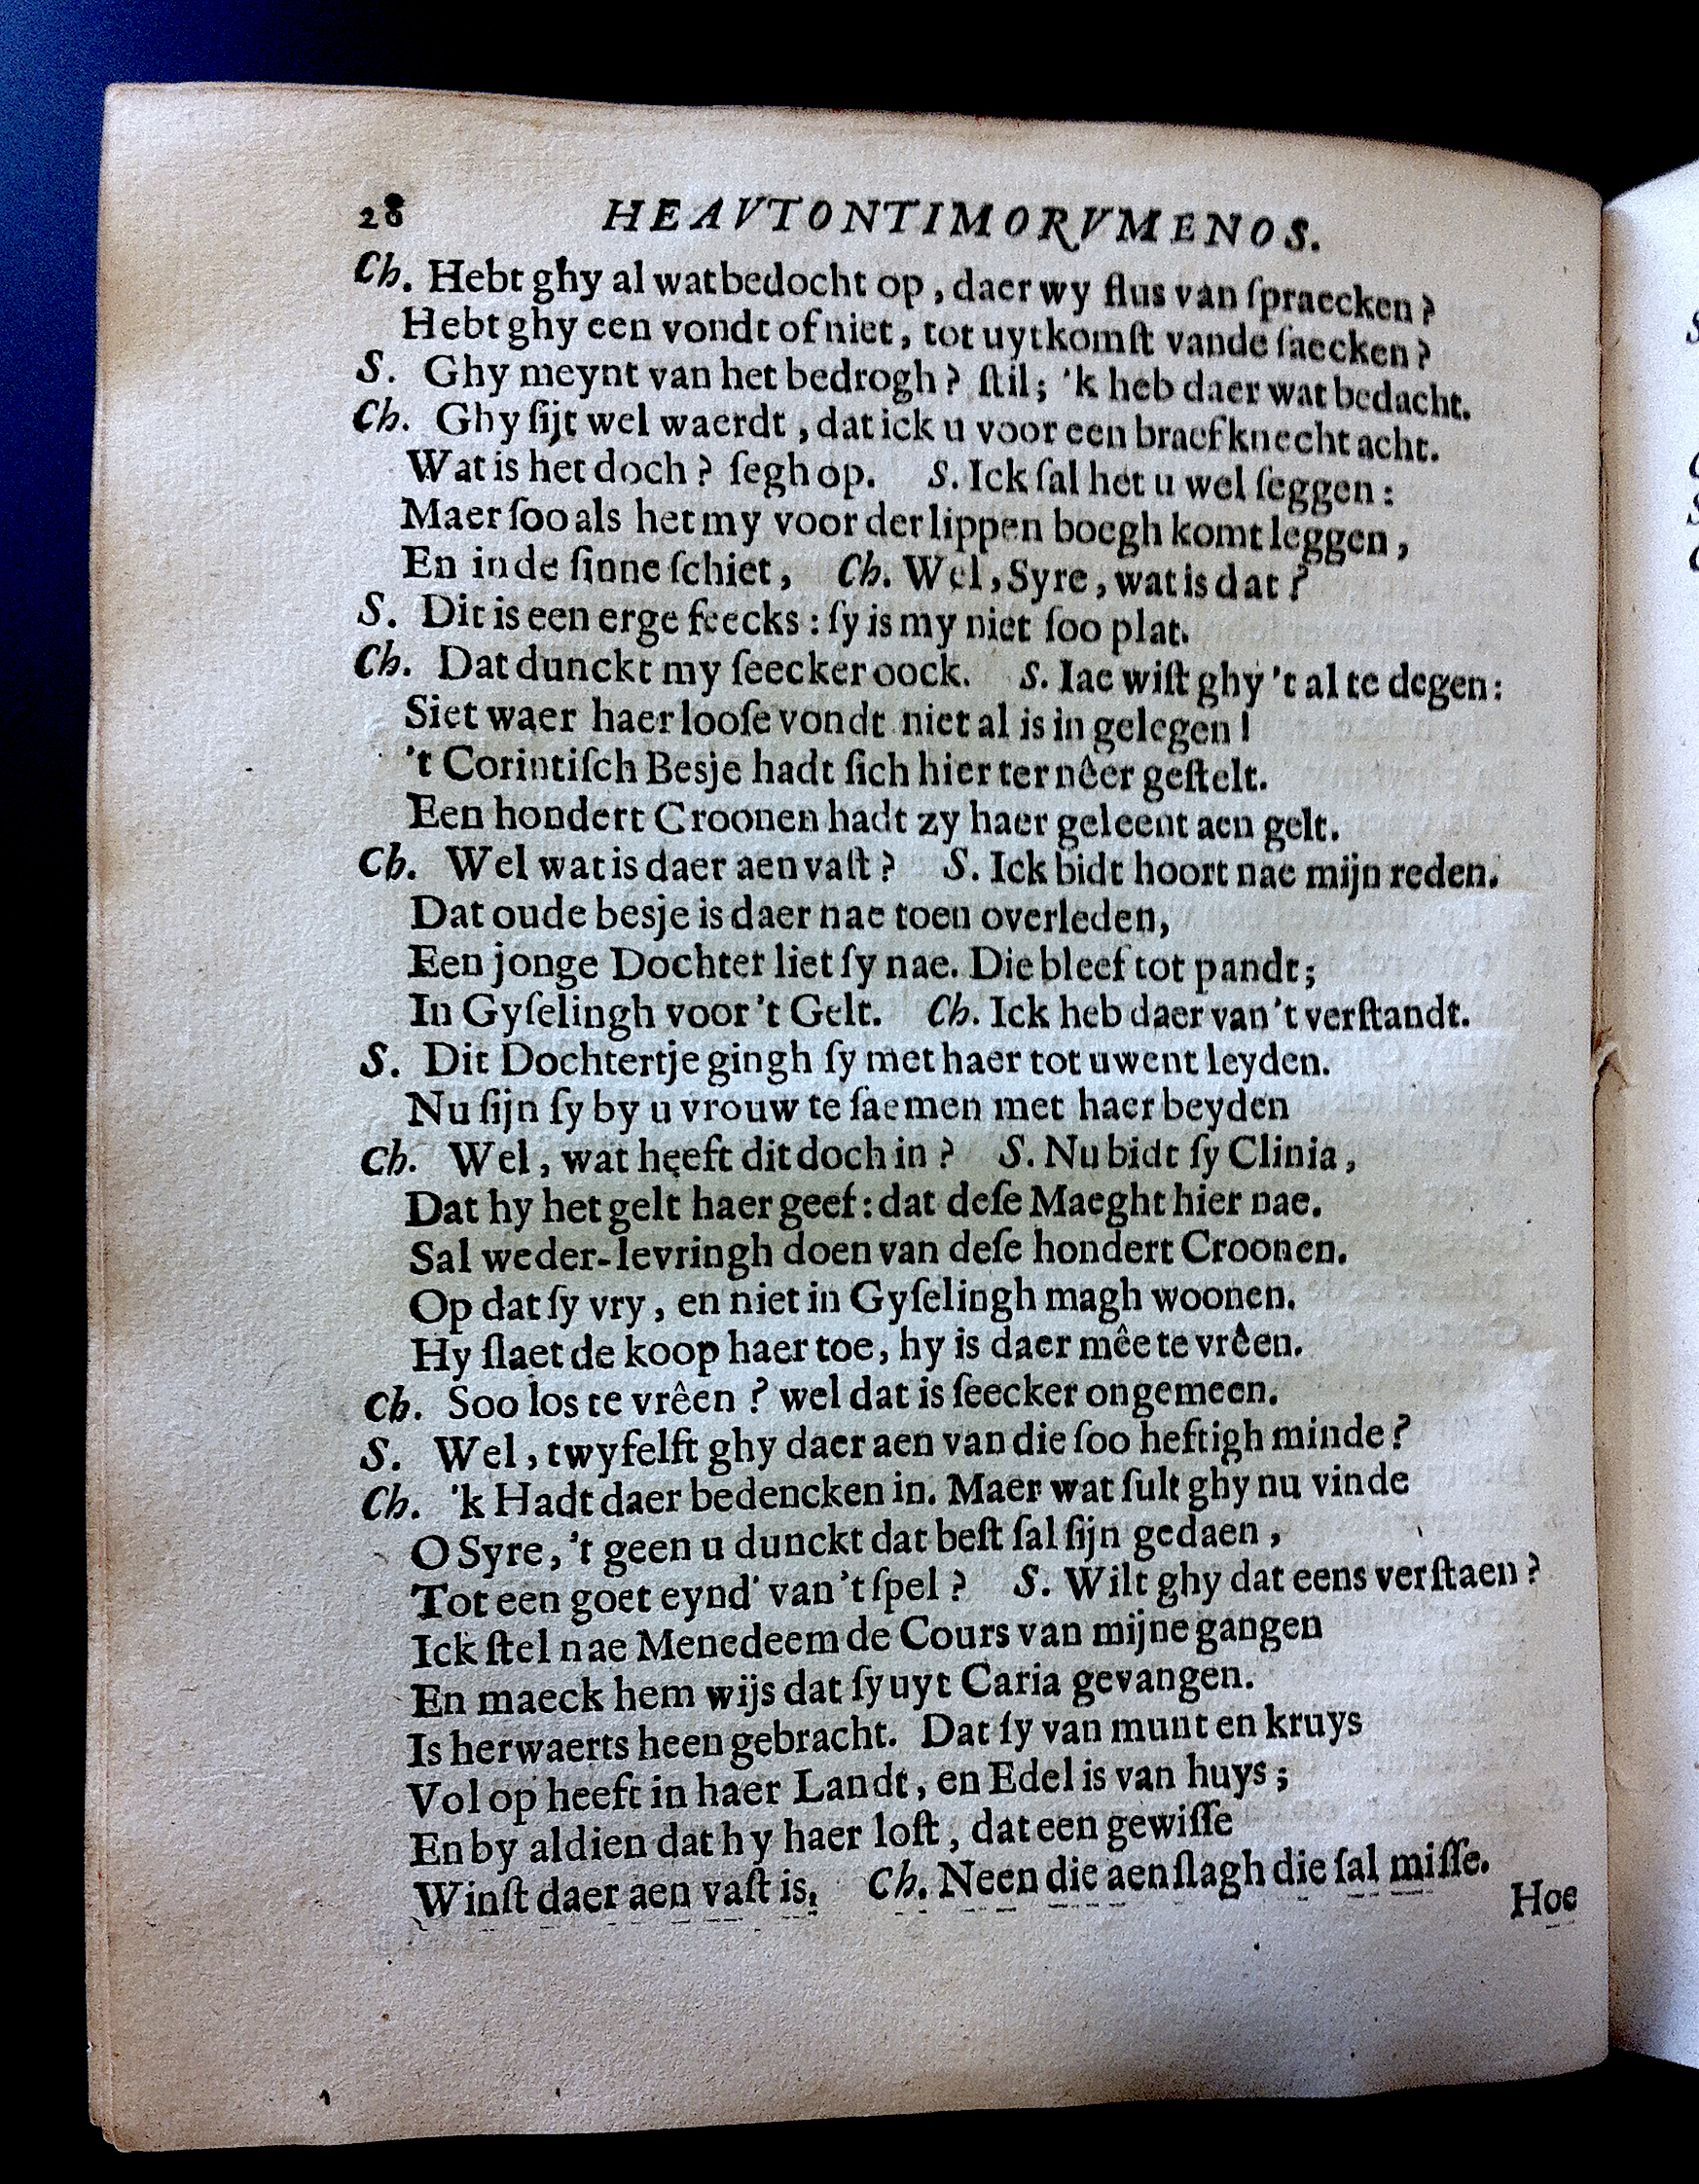 28 HEAVTONTIMORVMENOS.
Ch. Hebt ghy al wat bedocht op, daer wy flus van ſpraecken?
Hebt ghy een vondt of niet, tot uytkomſt vande ſaecken?
S. Ghy meynt van het bedrogh? ſtil; 'k heb daer wat bedacht.
Ch. Ghy ſijt wel waerdt, dat ick u voor een braef knecht acht.
Wat is het doch? ſegh op. S. Ick ſal het u wel ſeggen:
Maer ſoo als het my voor der lippen boegh komt leggen,
En inde ſinne ſchiet, Ch. Wel, Syre, wat is dat?
S. Dit is een erge feecks: ſy is my niet ſoo plat.
Ch. Dat dunckt my ſeecker oock. S. Iae wiſt ghy 't al te degen:
Siet waer haer looſe vondt niet al is in gelegen!
't Corintiſch Besje hadt ſich hier ter nêer geſtelt.
Een hondert Croonen hadt zy haer geleent aen gelt.
Ch. Wel wat is daer aen vaſt? S. Ick bidt hoort nae mijn reden.
Dat oude besje is daer nae toen overleden,
Een jonge Dochter liet ſy nae. Die bleef tot pandt;
In Gyſelingh voor 't Gelt. Ch. Ick heb daer van 't verſtandt.
S. Dit Dochtertje gingh ſy met haer tot uwent leyden.
Nu ſijn ſy by u vrouw te ſaemen met haer beyden
Ch. Wel, wat heeft dit doch in? S. Nu bidt ſy Clinia,
Dat hy het gelt haer geef: dat deſe Maeght hier nae.
Sal weder-levringh doen van deſe hondert Croonen.
Op dat ſy vry, en niet in Gyſelingh magh woonen.
Hy ſlaet de koop haer toe, hy is daer mêe te vrêen.
Ch. Soo los te vrêen? wel dat is ſeecker ongemeen.
S. Wel, twyfelft ghy daer aen van die ſoo heftigh minde?
Ch. 'k Hadt daer bedencken in. Maer wat ſult ghy nu vinde
O Syre, 't geen u dunckt dat beſt ſal ſijn gedaen,
Tot een goet eynd' van 't ſpel? S. Wilt ghy dat eens verſtaen?
Ick ſtel nae Menedeem de Cours van mijne gangen
En maeck hem wijs dat ſy uyt Caria gevangen.
Is herwaerts heen gebracht. Dat ſy van munt en kruys
Vol op heeft in haer Landt, en Edel is van huys;
En by aldien dat hy haer loſt, dat een gewiſſe
Winſt daer aen vaſt is, Ch. Neen die aenſlagh die ſal miſſe.
Hoe